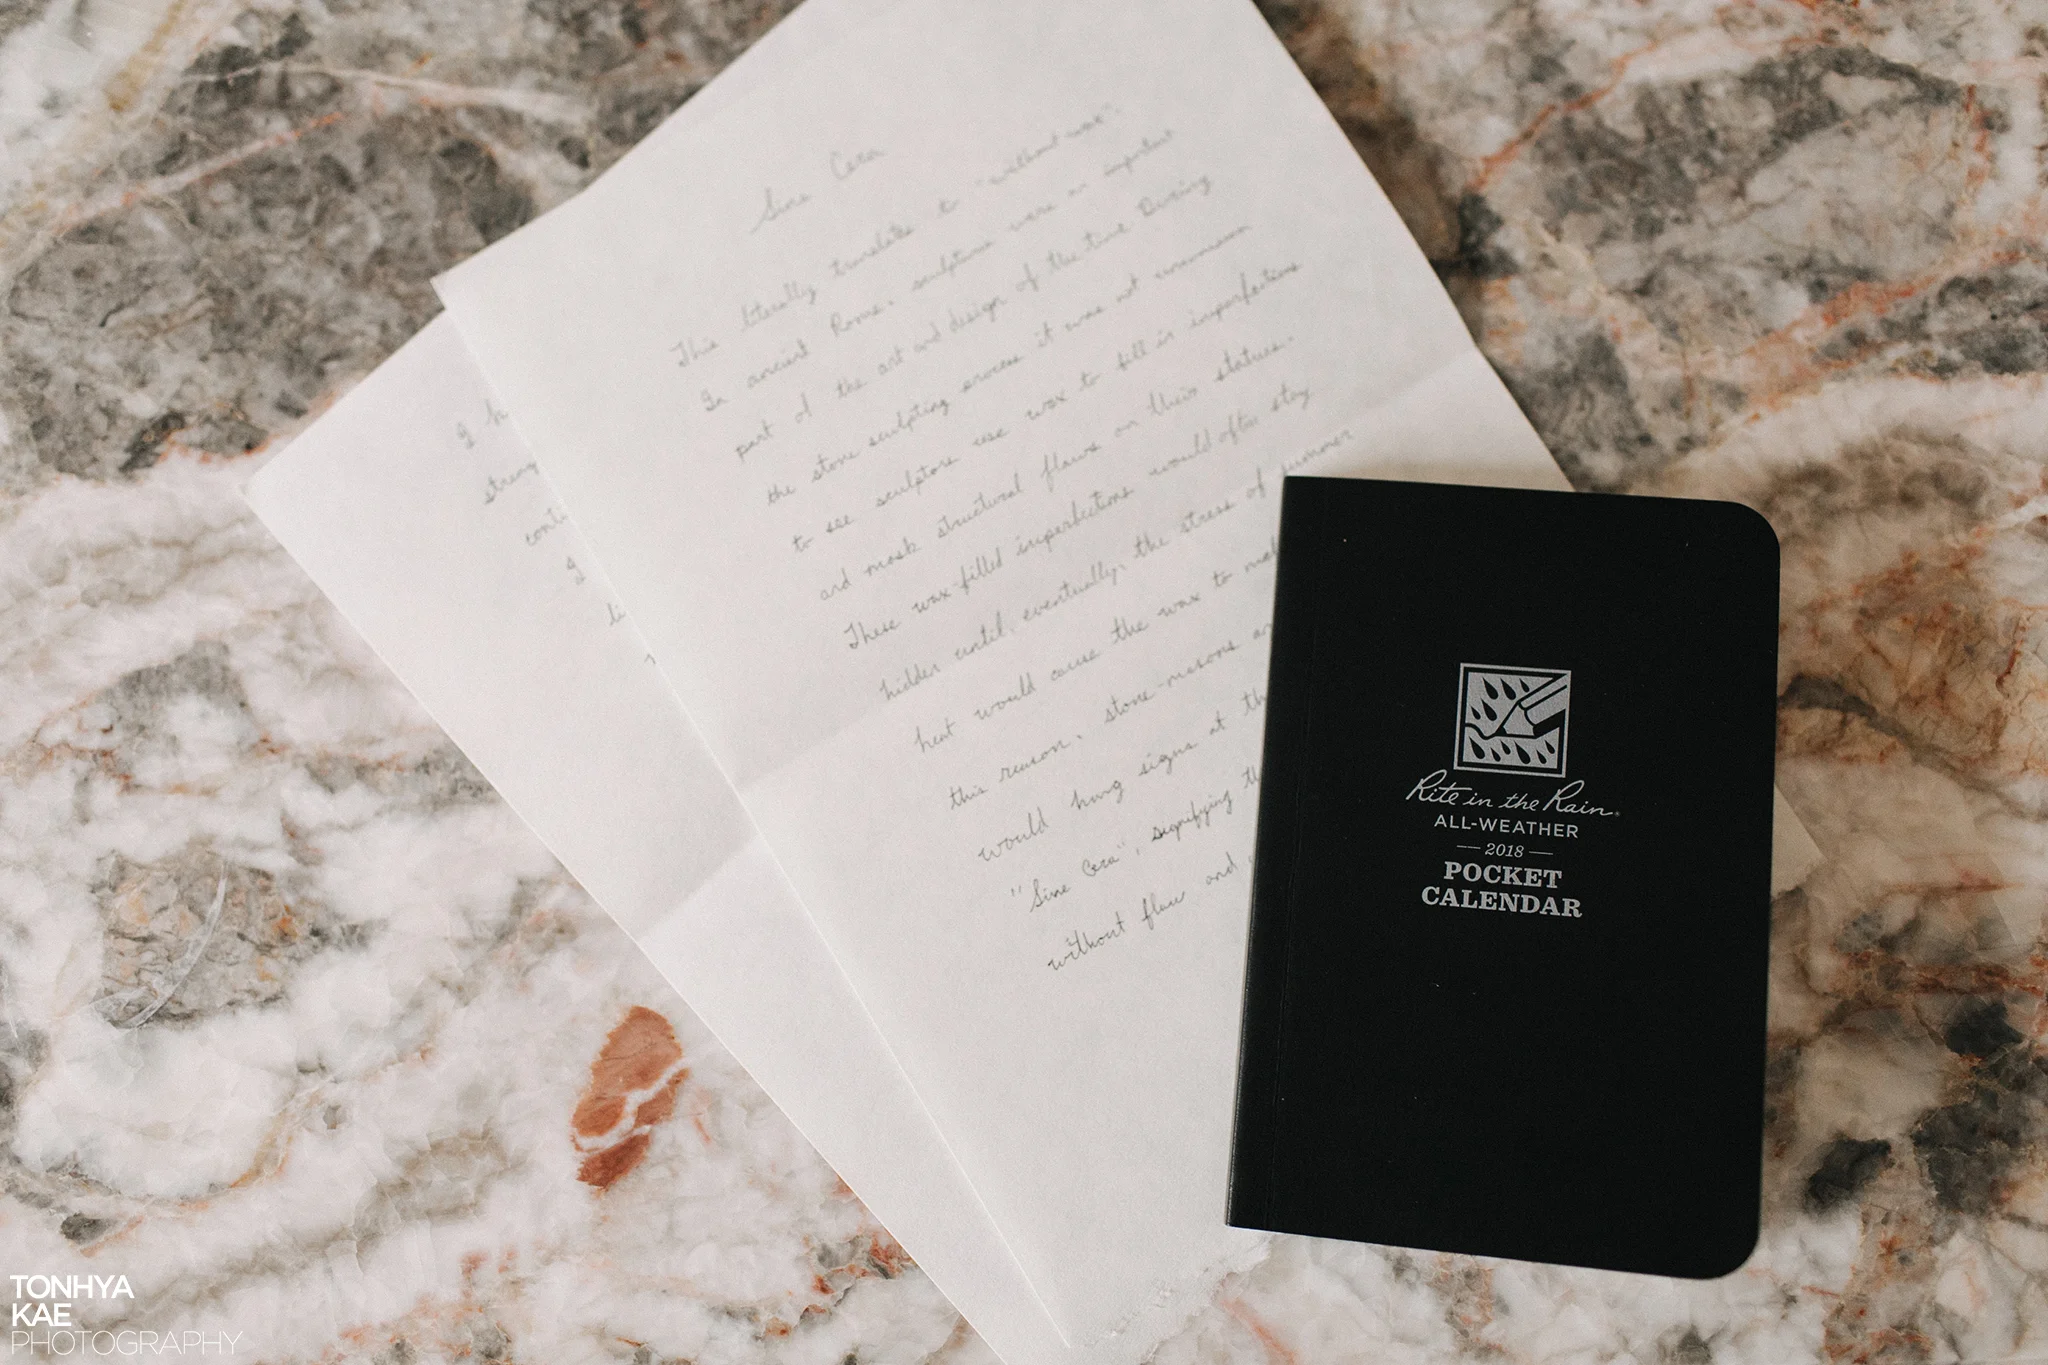 Sine Cera
This literally translates to "without wax".
In ancient Rome, sculptures were an important
part of the art and design of the time. During
the stone sculpting process it was not uncommon
to see sculptors use wax to fill in imperfections
and mask structural flaws on their statues.
These wax-filled imperfections would often stay
hidden until, eventually, the stress of summer
heat would cause the wax to
this reason, stone-masons
would hang signs at
"Sine Cera", signifying
without flaw and
I
I
Rite in the Rain®
ALL-WEATHER
— 2018 —
POCKET
CALENDAR
TONHYA
KAE
PHOTOGRAPHY